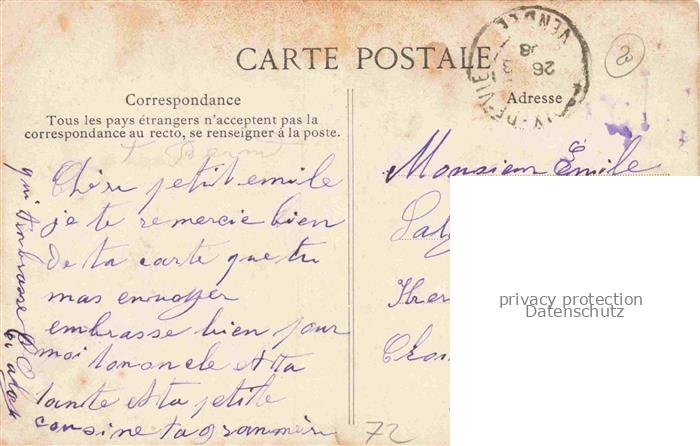 CARTE POSTALE
Correspondance
Tous les pays étrangers n'acceptent pas la
correspondance au recto, se renseigner à la poste.
Chéri petit emile
je te remercie bien
de ta carte que tu
mas envoyer
embrasse bien pour
moi ton oncle et ta
tante et ta petite
cousine ta grammère
qui t'embrasse
VENDÉE
26
08
Adresse
Monsieur Émile
privacy protection
Datenschutz
72